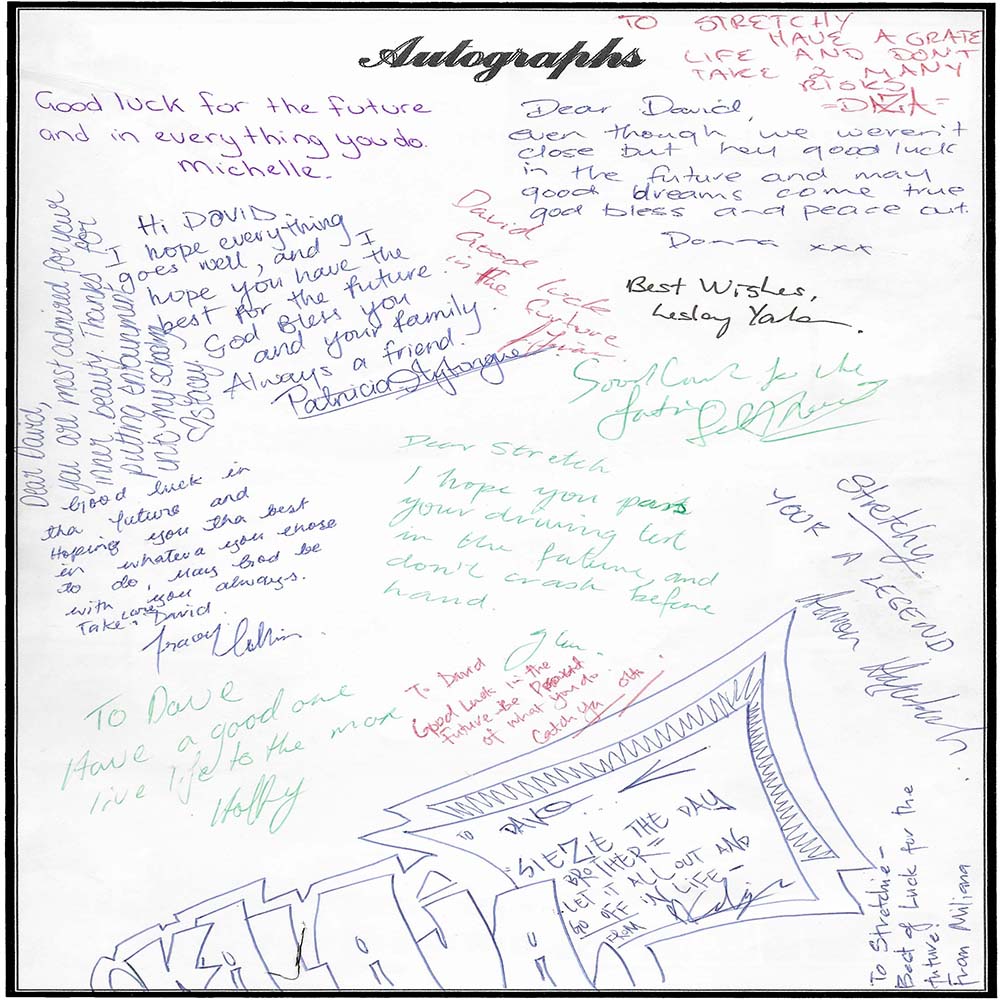 Autographs
TO STRETCHY
HAVE A GRATE
LIFE AND DON'T
TAKE 2 MANY
RISKS
=DAZA=
Good luck for the future
and in everything you do.
Michelle.
Dear David,
even though we weren't
close but hey good luck
in the future and may
good dreams come true
god bless and peace out.
Donna xxx
Dear David,
you are most admired for your
inner beauty. Thanks for
putting entounment
into my schooling
Stacey.
Hi DAVID
I hope everything
goes well, and I
hope you have the
best for the future.
God Bless you
and your family.
Always a friend.
Patricia
David
Good luck
in the
future
Best Wishes,
Lesley
Good luck for the
Dear Stretch
I hope you pass
your driving test
in the future, and
don't crash before
hand.
Good luck in
tha future and
Hoping you tha best
in whateva you chose
to do, may God be
with you always.
Take care David.
Tracey
Stretchy.
YOUR A LEGEND
Aaron
To Dave
Have a good one
live life to the max
Holly
To David
Good Luck in the
Future. Be Proud
of what you do.
Catch Ya
TO DAVO
SIEZE THE DAY
BROTHER=
LET IT ALL OUT AND
GO OFF IN LIFE-
FROM
To Stretchie -
Best of Luck for the
future!
From Miliana